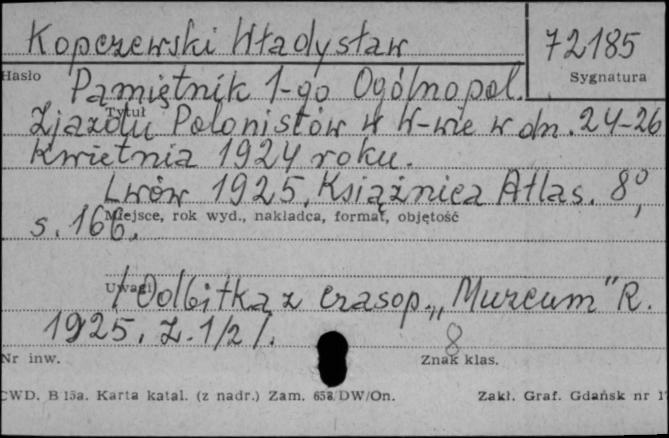 Kopczewski Władysław
72185
Hasło
Sygnatura
Pamiętnik 1-go Ogólnopol.
Tytuł
Zjazdu Polonistów w W-wie w dn. 24-26
Kwietnia 1924 roku.
Lwów 1925, Książnica Atlas. 8°,
Miejsce, rok wyd., nakładca, format, objętość
s. 166.
Uwagi
/Odbitka z czasop. „Muzeum" R.
1925, Z. 1/2/.
8
Nr inw.
Znak klas.
CWD. B 15a. Karta katal. (z nadr.) Zam. 658/DW/On.
Zakł. Graf. Gdańsk nr 1